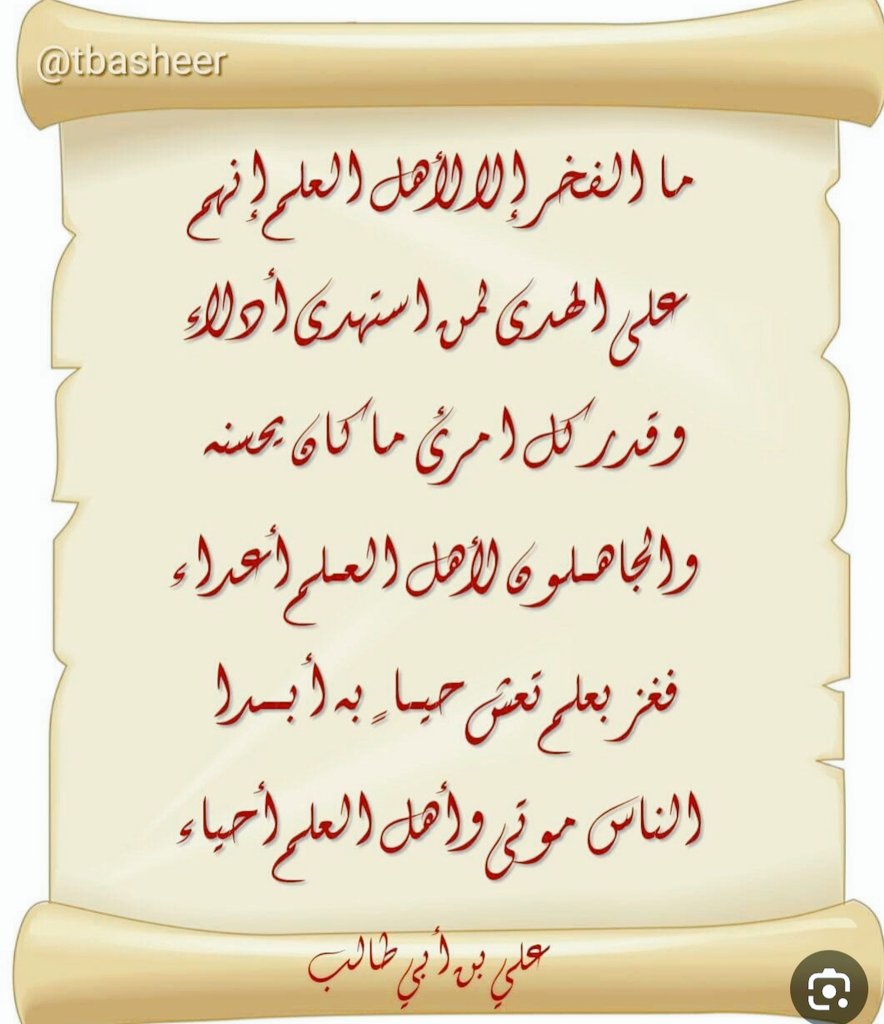 @tbasheer
ما الفخر إلا لأهل العلم إنهم
على الهدى لمن استهدى أدلاء
وقدر كل امرئ ما كان يحسنه
والجاهـلون لأهل العـلم أعداء
فغز بعلم تعش حيـا ٍ به أبـدا
الناس موتى وأهل العلم أحياء
علي بن أبي طالب